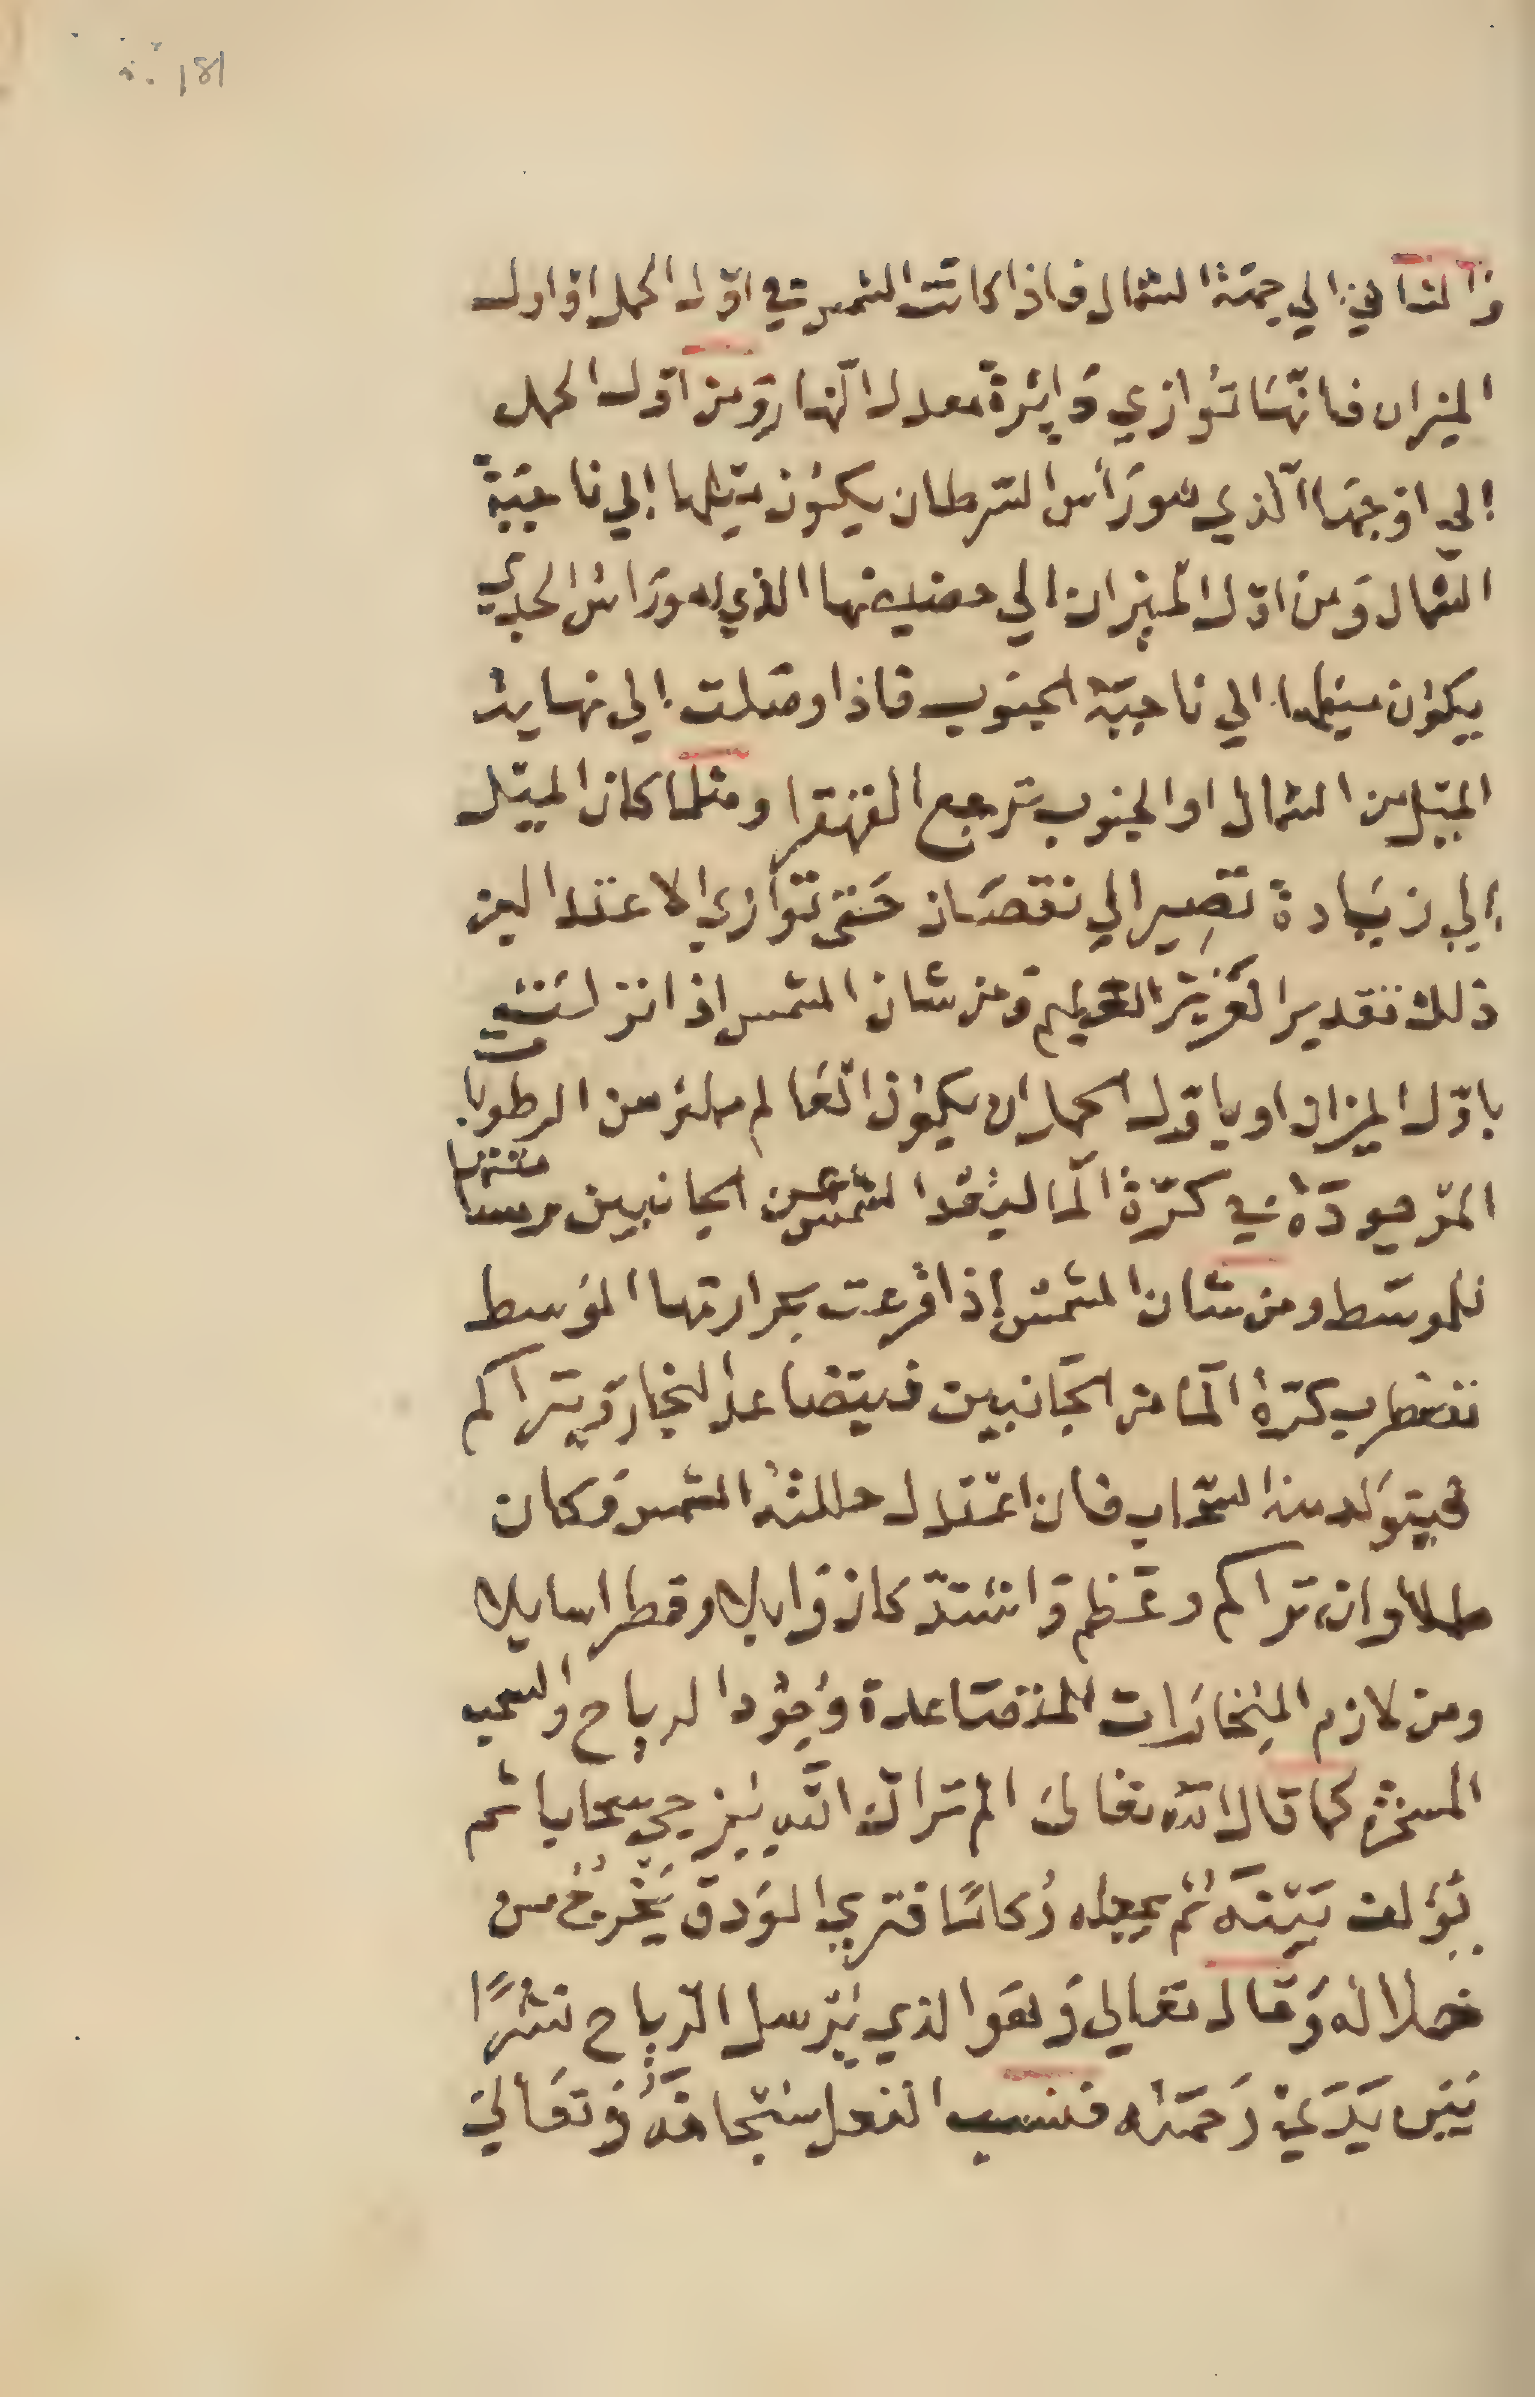 181
والثاني الي جهة الشمال فاذا كانت الشمس في اوّل الحمل اوّ اول
الميزان فانّهَا تُوازي دَايرةً معدل النّهار وَمن اوّل الحمل
الي اوجهَا الّذي هو رَأس السّرطان يكون ميلها الي ناحيَةً
الشّمال وَمن اوّل المِيزان الي حضيضها الذي هو رَاس الجدي
يكون ميلها الي ناحيَة الجنوب فاذا وصلت الي نهاية
الميَل من الشمال او الجنوب ترجع القهقرا ومثلما كان الميَل
الي زيَادة تَصِير الي نقصَان حَتي تتوازي الاعتدالين
ذلك تقدير العَزيز العليم وَمن شان الشمس اذا نزلت
باوّل الميزان او باوّل الحمل ان يكون العَالم من الرطوبات
الموجودَة في كرّة المَا الجانبين
للوسَط ومن شان الشمس إذا قرعت بحرارتها الوَسط
تضطرب كرّة المَا من الجَانبين فيتصَاعد البخار وَيتراكم
فيتوَلد منه السّحاب فان اعتدل حللته الشمس وَكان
طلا وان تراكم وعَظم وَاشتدّ كان وَابلا وقطرا سايلا
ومن لازم البُخارَات المتصَاعدة وُجُود الرياح والسحب
المسخرة كما قال الله تعَالىَ الم ترَ انّ الله يُزجي سحابا ثم
يُؤلف بَيْنَه ثُم يجعله رُكامًا فتري الوَدق يَخْرُجُ من
خلاله وَقال تعَالي وَهوَ الذي يُرسل الرّياح نشرًا
بَيَن يَدَيْ رَحمَته فنسب الفعل سُبحانَهُ وَتعَاليَ